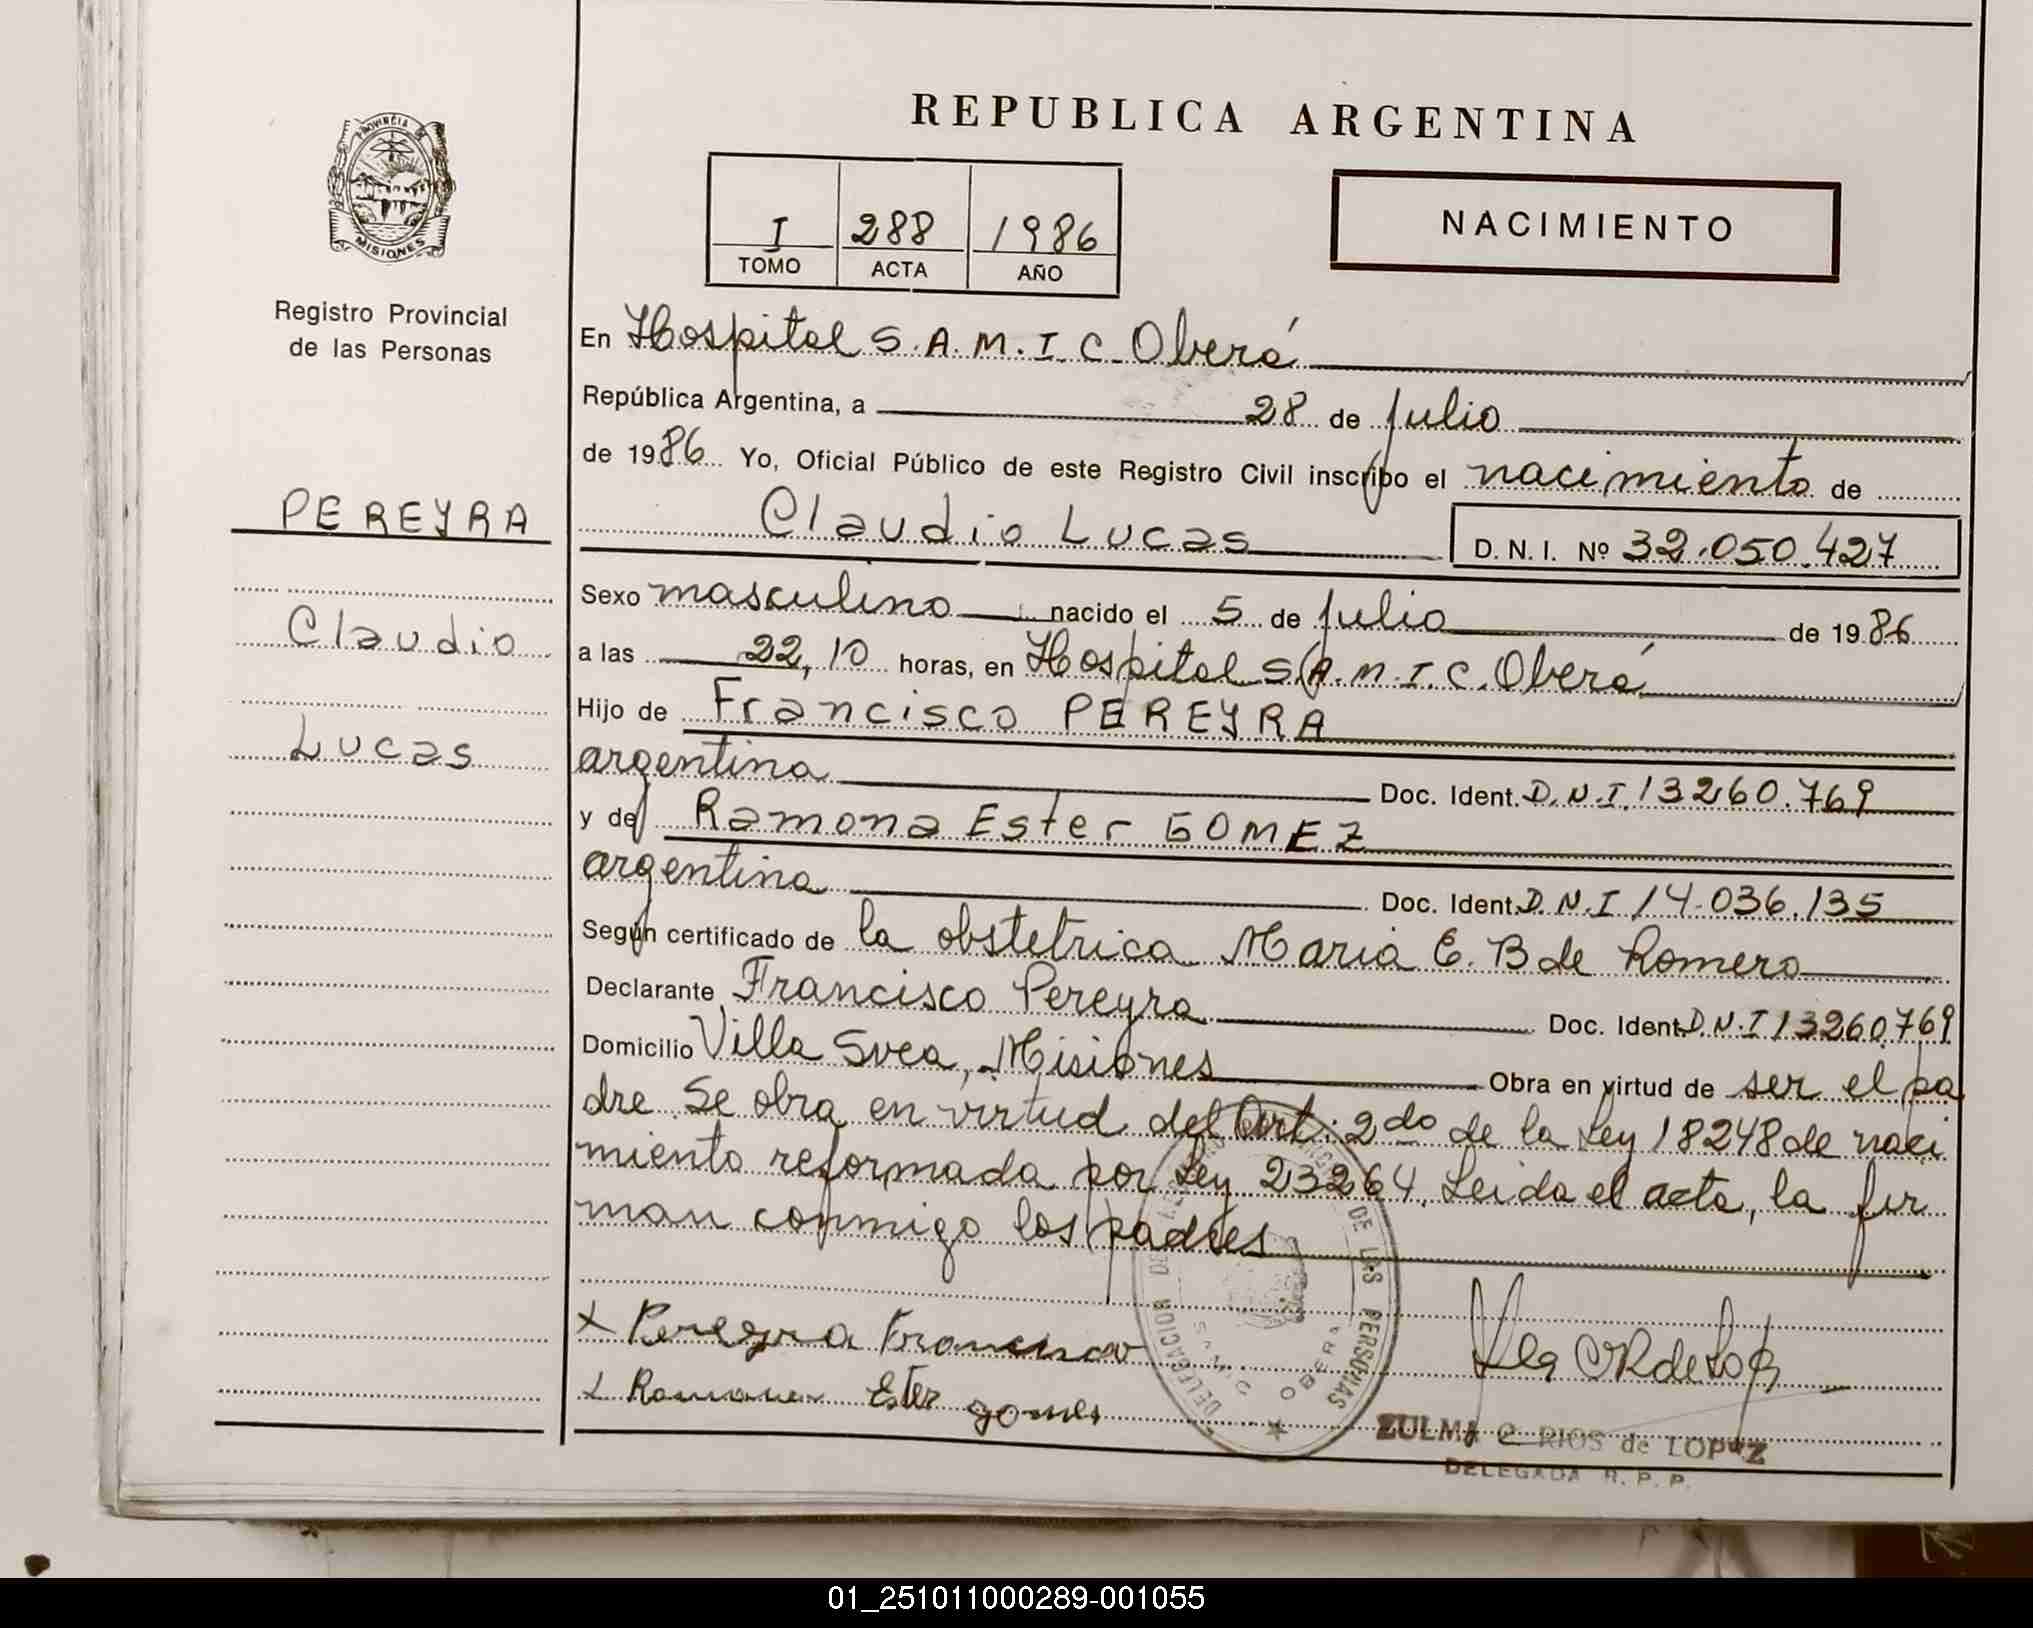 REPUBLICA ARGENTINA
PROVINCIA DE
MISIONES
Registro Provincial
de las Personas
I 288 1986
TOMO ACTA AÑO
NACIMIENTO
En Hospital S.A.M.I.C. Oberá
República Argentina, a 28 de julio
de 1986 Yo, Oficial Público de este Registro Civil inscribo el nacimiento de
PEREYRA
Claudio Lucas D.N.I. Nº 32.050.427
Sexo masculino nacido el 5 de julio de 1986
Claudio
a las 22,10 horas, en Hospital S.A.M.I.C. Oberá
Hijo de Francisco PEREYRA
Lucas
argentina Doc. Ident. D.N.I. 13260.769
y de Ramona Ester GOMEZ
argentina Doc. Ident. D.N.I 14.036.135
Según certificado de la obstetrica Maria E. B de Romero
Declarante Francisco Pereyra Doc. Ident. D.N.I 13260.769
Domicilio Villa Svea, Misiones Obra en virtud de ser el pa
dre. Se obra en virtud del Art: 2do de la Ley 18248 de naci
miento reformada por Ley 23264. Leida el acta, la fir
man conmigo los padres
DELEGACION DE LAS PERSONAS
OBERA
x Pereyra Francisco
x Ramona Ester
gomes
ZULMA C RIOS de LOPEZ
DELEGADA R. P. P.
01_251011000289-001055